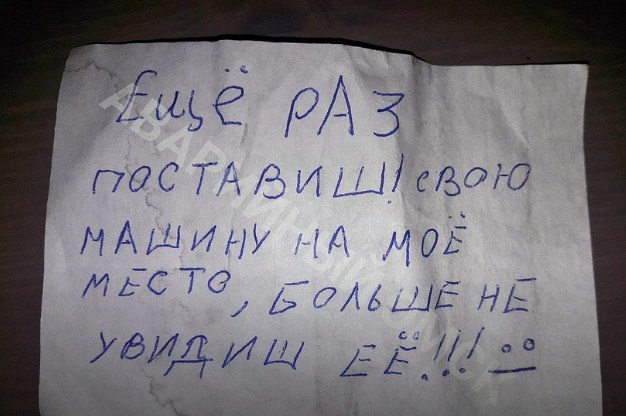 Ещё РАЗ
ПОСТАВИШ! СВОЮ
МАШИНУ НА МОЁ
МЕСТО, БОЛЬШЕ НЕ
УВИДИШ ЕЁ!!!